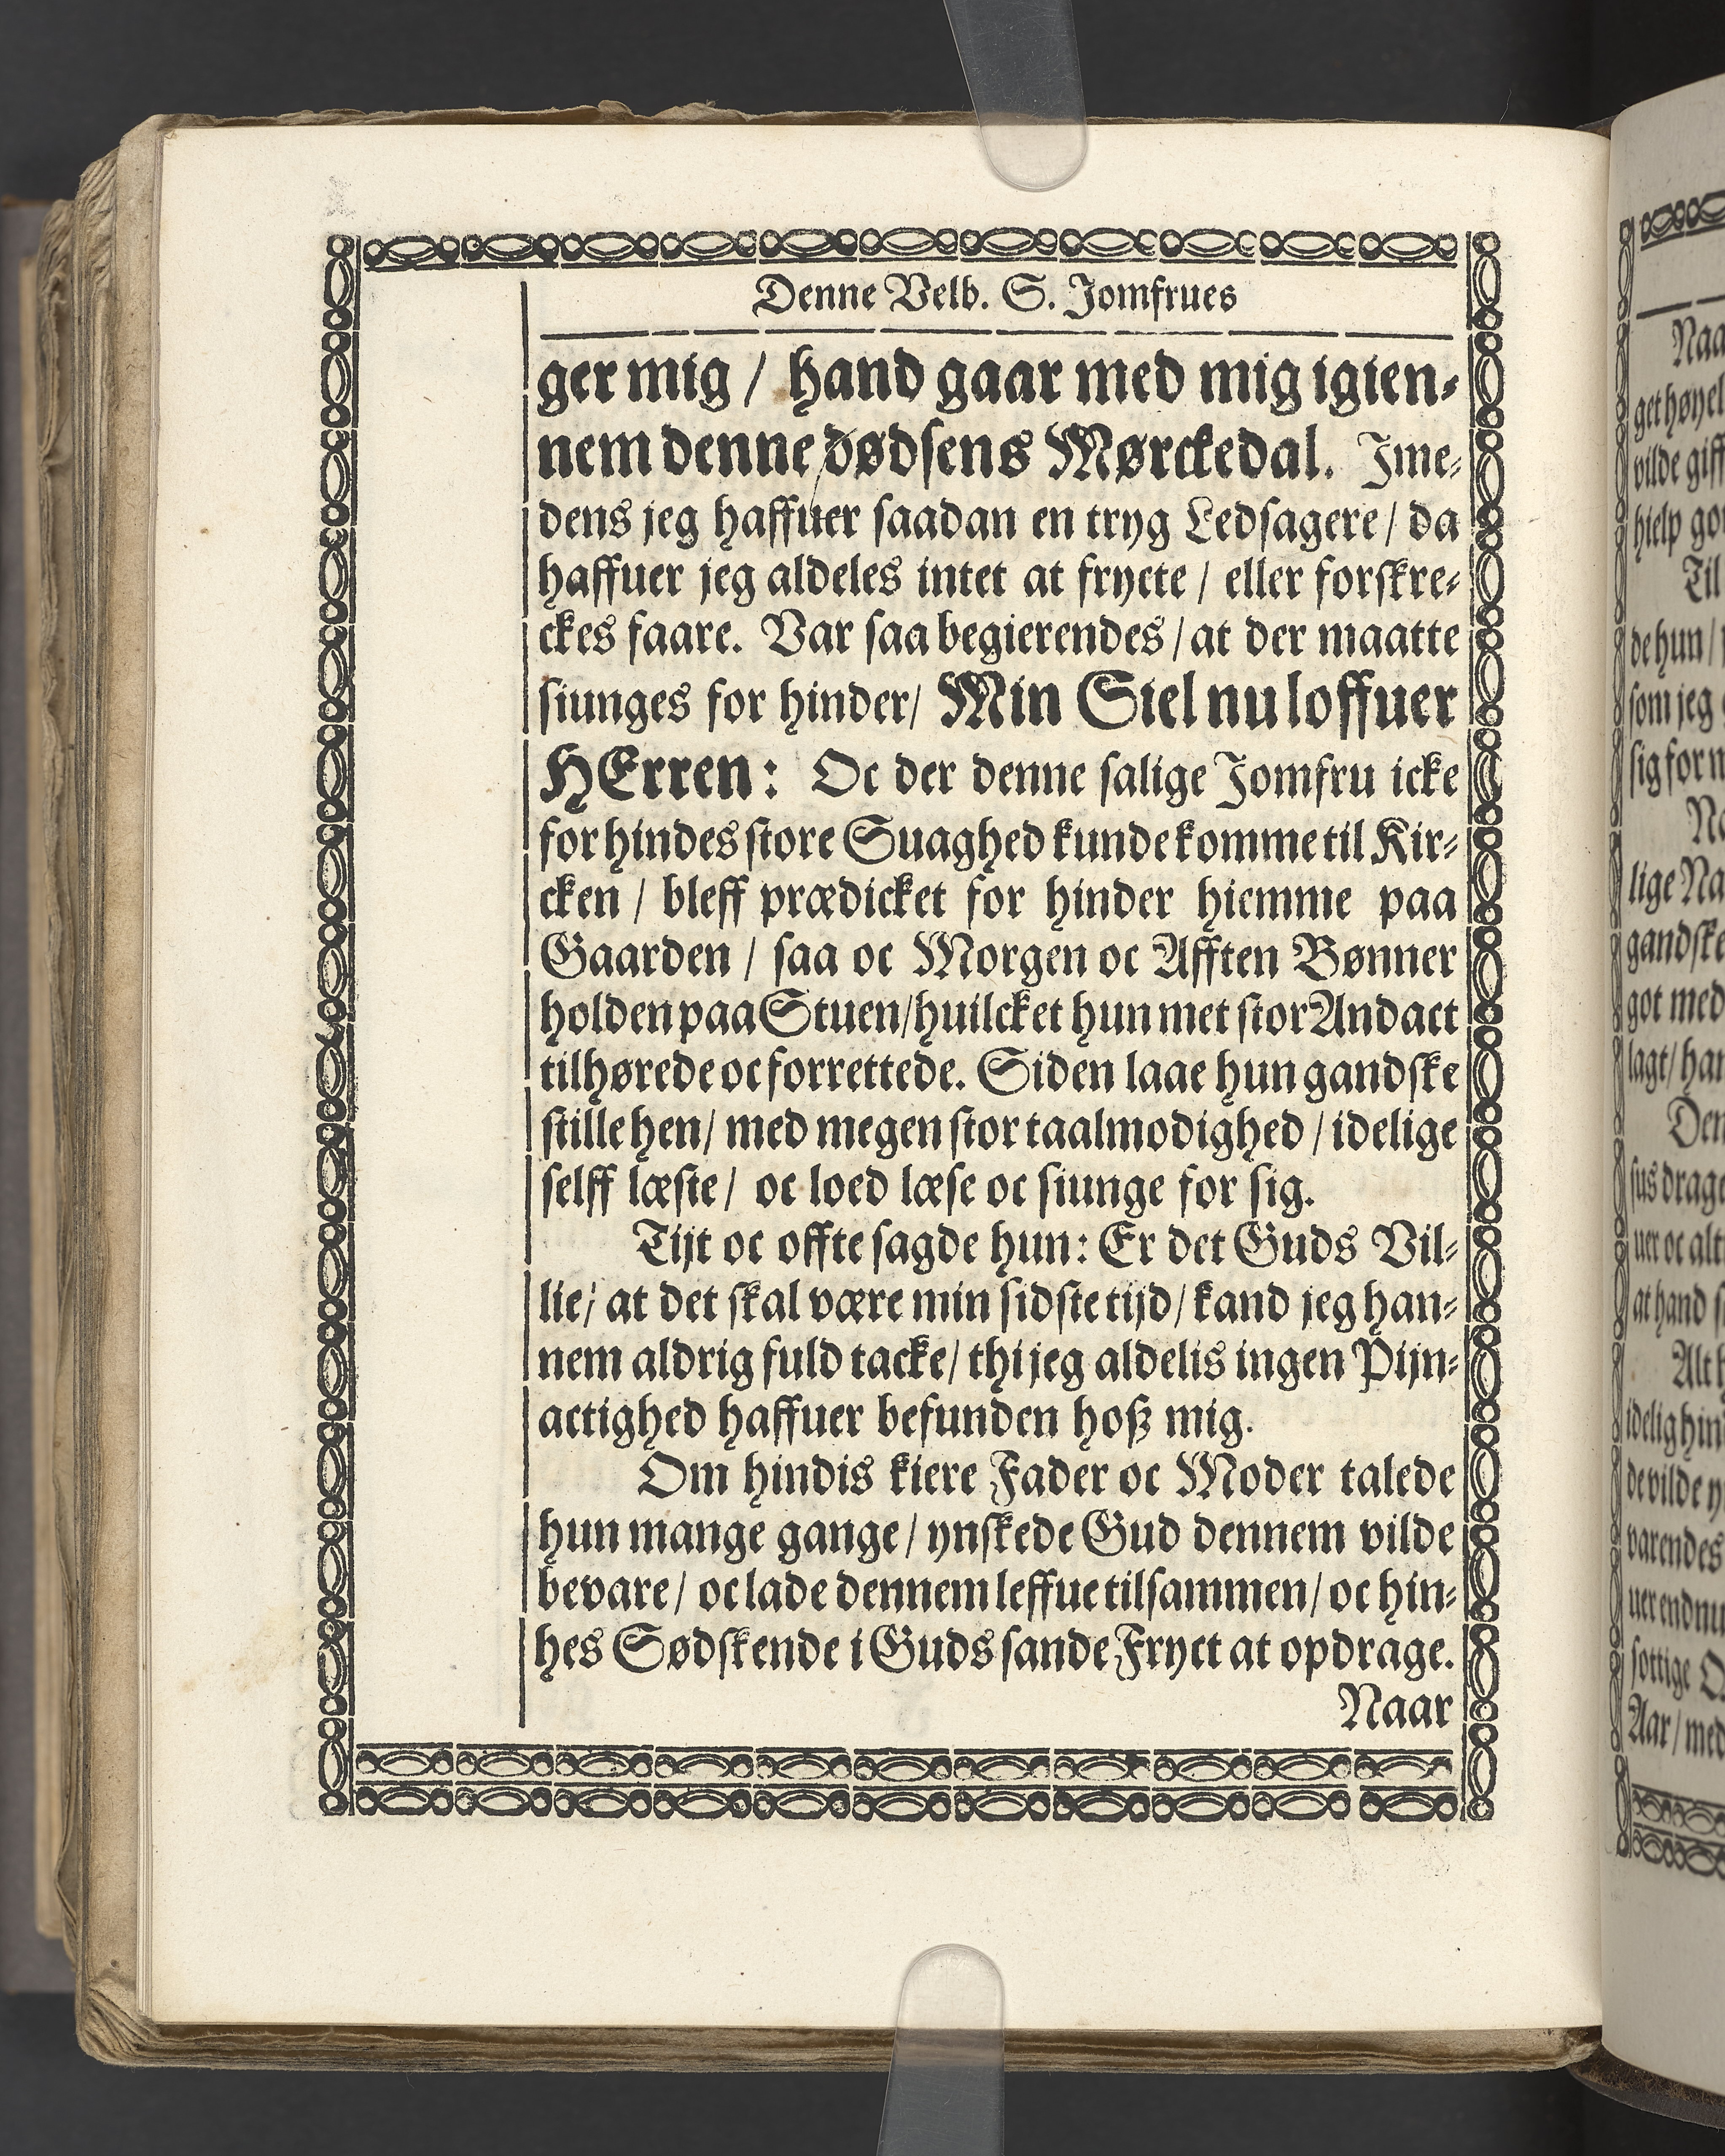 Denne Velb. S. Jomfrues
ger mig / hand gaar med mig igien⸗
nem denne dødſens Mørckedal. Jme⸗
dens jeg haffuer ſaadan en tryg Ledſagere / da
haffuer jeg aldeles intet at frycte / eller forſkre⸗
ckes faare. Var ſaa begierendes / at der maatte
ſiunges for hinder / Min Siel nu loffuer
HErren: Oc der denne ſalige Jomfru icke
for hindes ſtore Suaghed kunde komme til Kir⸗
cken / bleff prædicket for hinder hiemme paa
Gaarden / ſaa oc Morgen oc Afften Bønner
holden paa Stuen / huilcket hun met ſtor Andact
tilhørede oc forrettede. Siden laae hun gandſke
ſtille hen / med megen ſtor taalmodighed / idelige
ſelff læſte / oc loed læſe oc ſiunge for ſig.
Tijt oc offte ſagde hun: Er det Guds Vil⸗
lie / at det ſkal være min ſidſte tijd / kand jeg han⸗
nem aldrig fuld tacke / thi jeg aldelis ingen Pijn⸗
actighed haffuer befunden hoß mig.
Om hindis kiere Fader oc Moder talede
hun mange gange / ynſkede Gud dennem vilde
bevare / oc lade dennem leffue tilſammen / oc hin⸗
hes Sødſkende i Guds ſande Fryct at opdrage.
Naar
Naa
get høyel
vilde giff
hielp go
Til
de hun /
ſom jeg
ſig for n
lige Na
gandſke
got med
lagt / han
Den
ſus drage
uer oc alt
at hand ſ
Alt h
idelig hin
de vilde y
varendes
uer endnu
ſottige O
Aar / med